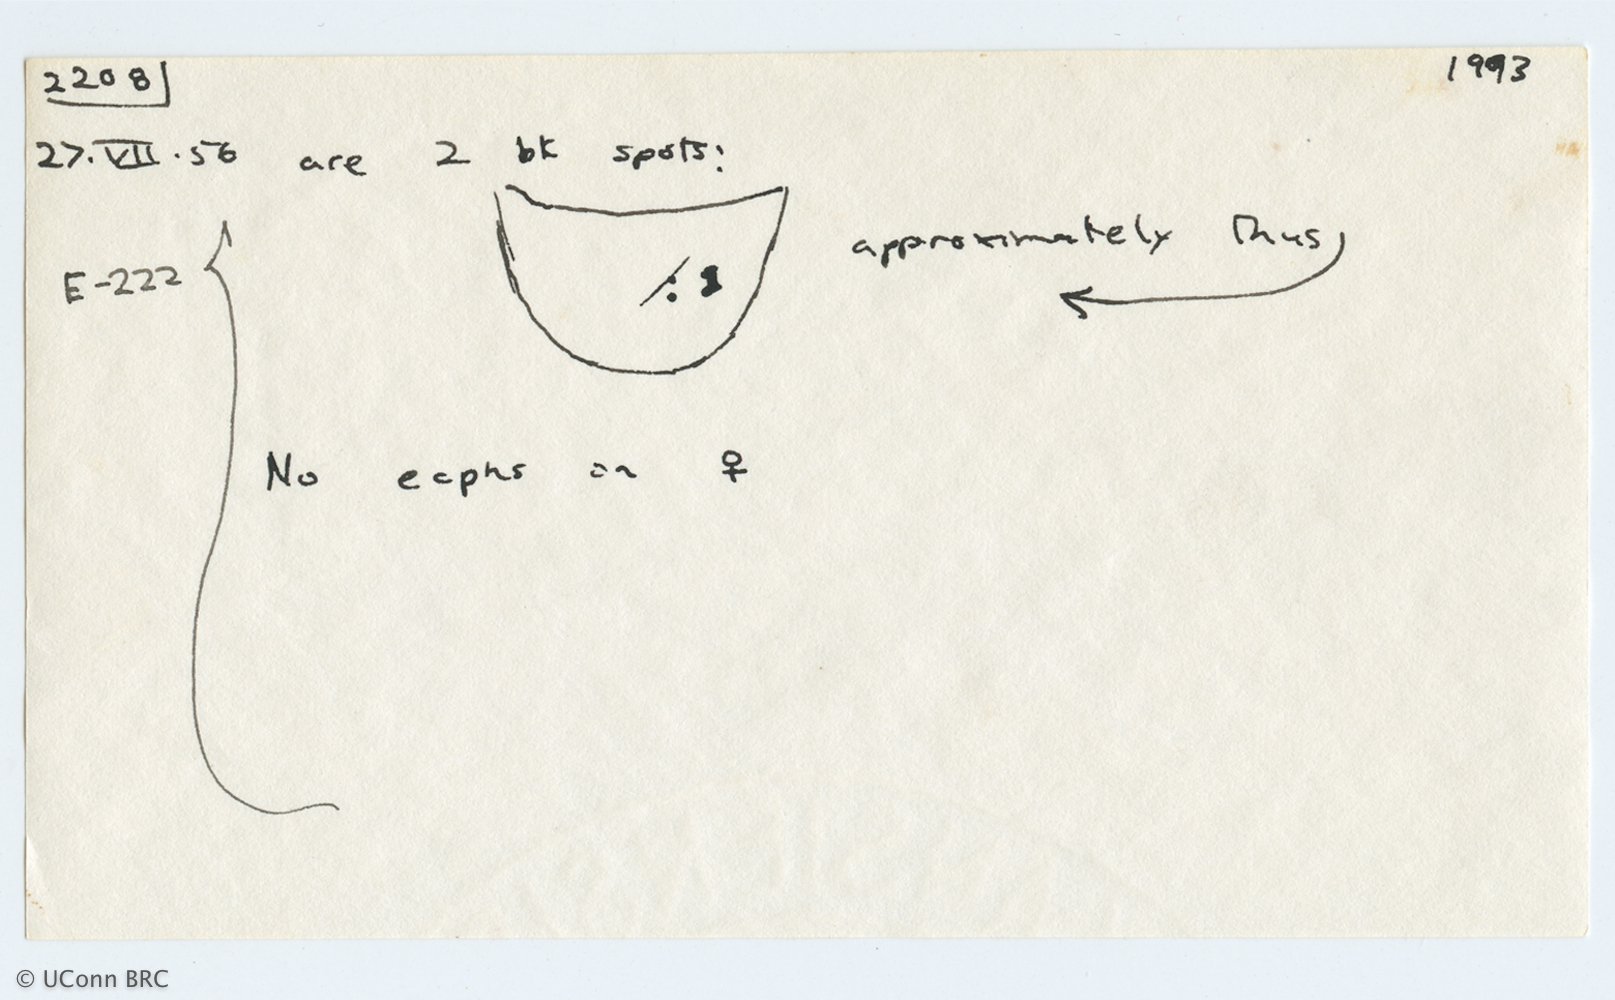 2208
1993
27.VII.56 are 2 bk spots:
approximately thus,
E-222
No ecphs on ♀
© UConn BRC